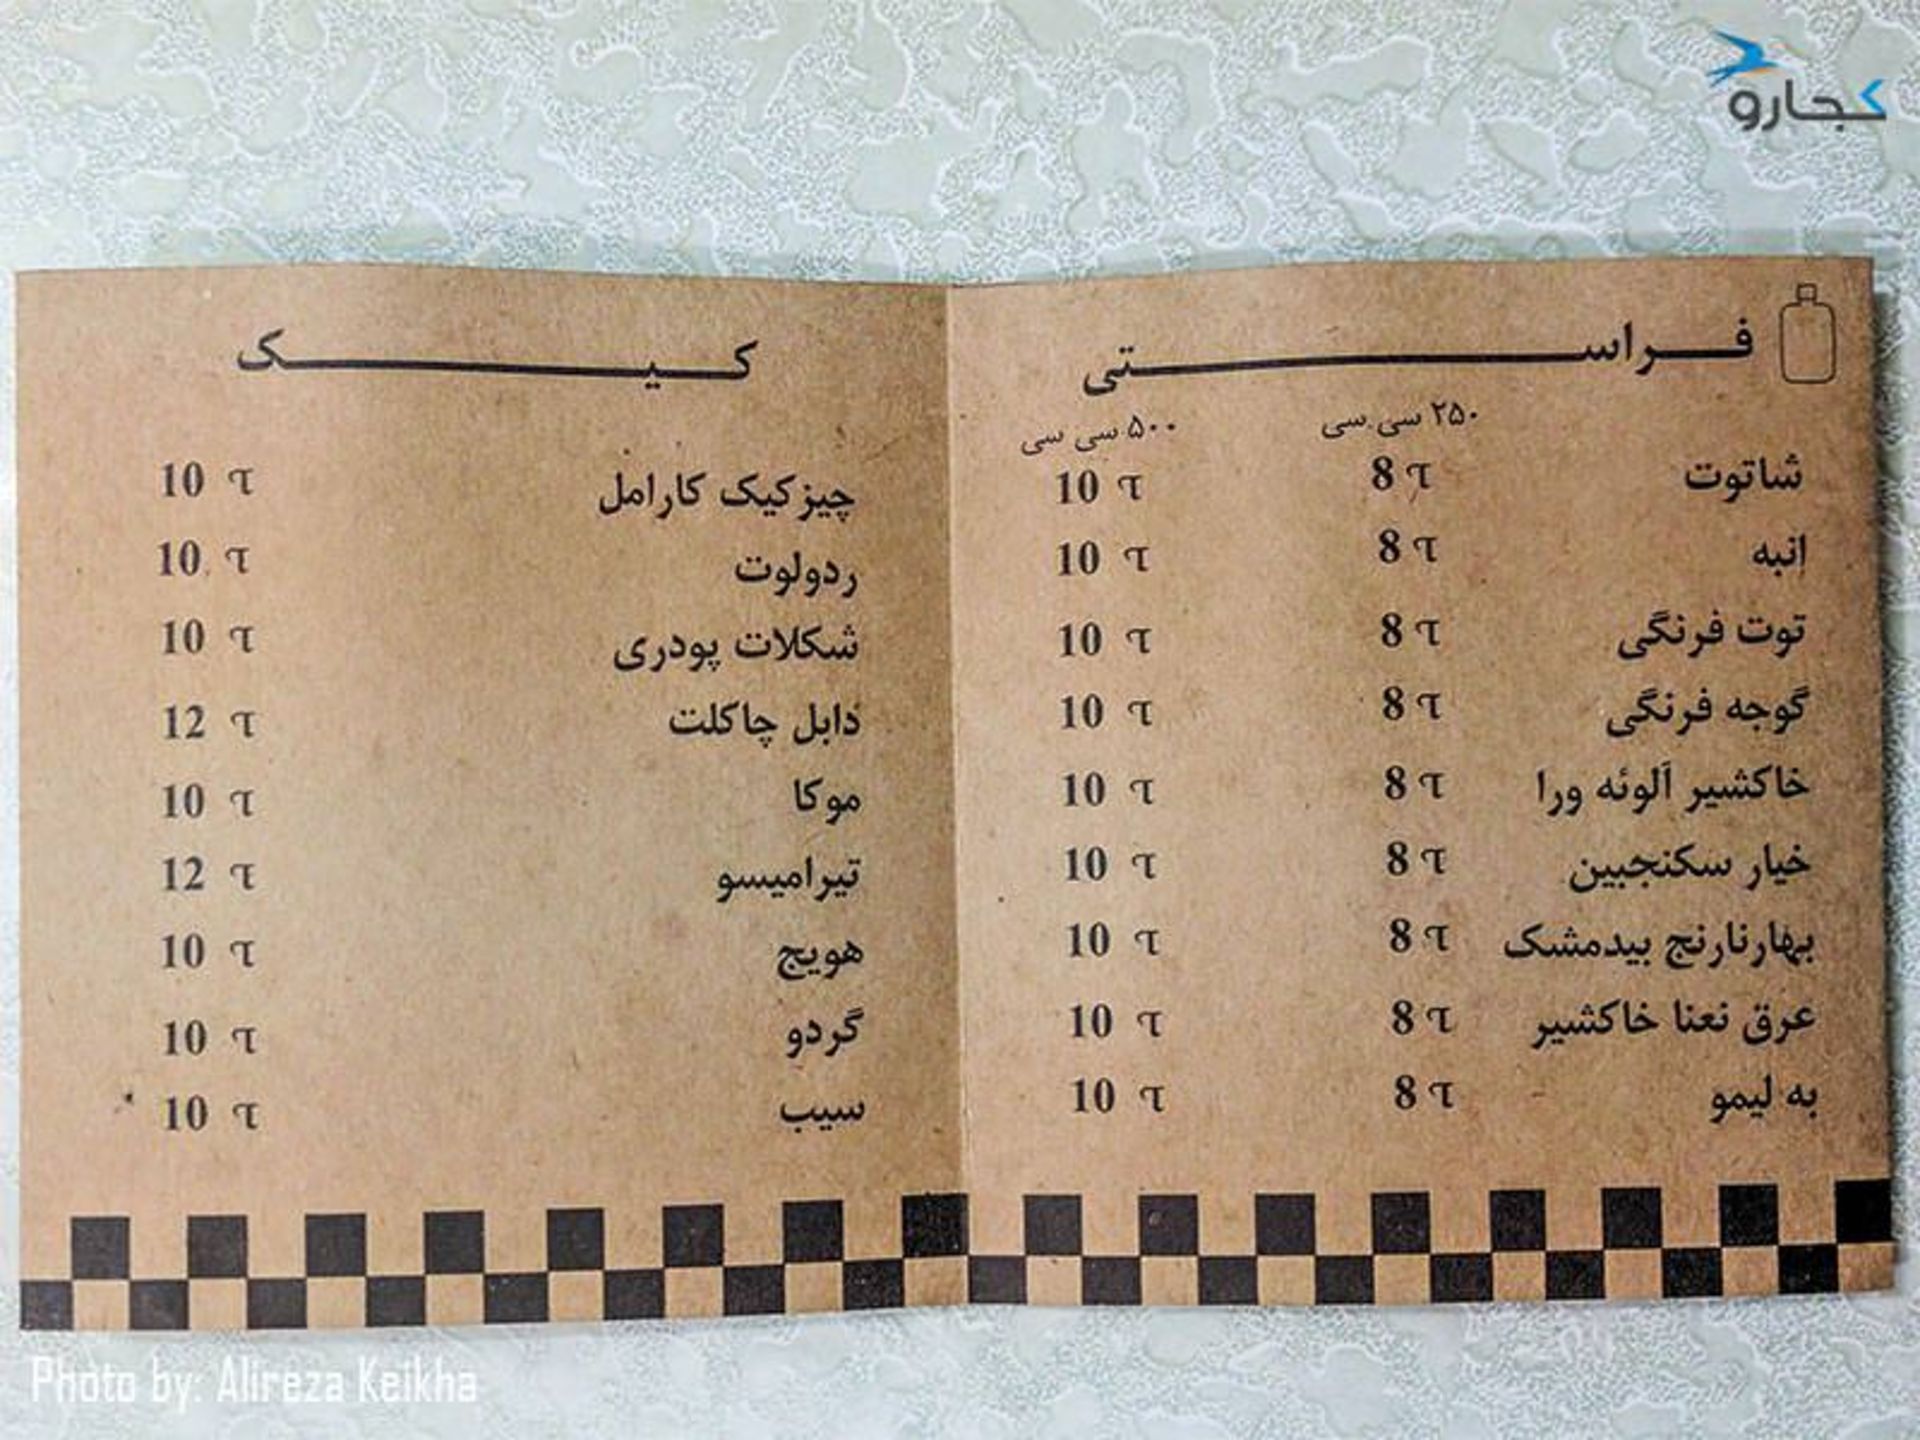 کجارو
فراستی
۲۵۰ سی سی ۵۰۰ سی سی
شاتوت 8 T 10 T
انبه 8 T 10 T
توت فرنگی 8 T 10 T
گوجه فرنگی 8 T 10 T
خاکشیر آلوئه ورا 8 T 10 T
خیار سکنجبین 8 T 10 T
بهارنارنج بیدمشک 8 T 10 T
عرق نعنا خاکشیر 8 T 10 T
به لیمو 8 T 10 T
کیک
چیزکیک کارامل 10 T
ردولوت 10 T
شکلات پودری 10 T
دابل چاکلت 12 T
موکا 10 T
تیرامیسو 12 T
هویج 10 T
گردو 10 T
سیب 10 T
Photo by: Alireza Keikha